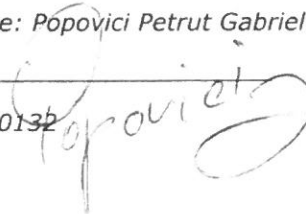 e: Popovici Petrut Gabriel
0132
Popovici